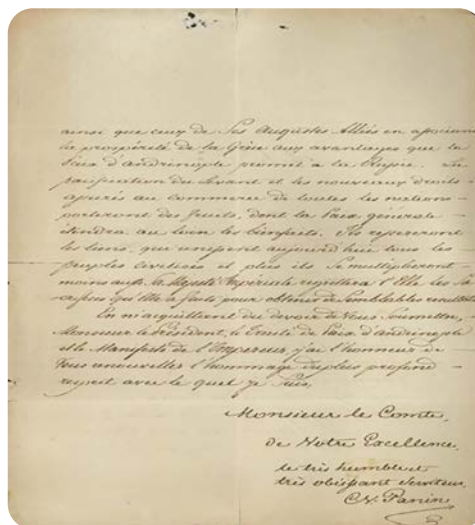 ainsi que ceux de Ses Augustes Alliés en associant
la prospérité de la Grèce aux avantages que la
Paix d'Andrinople promet à la Russie. La
pacification du Levant et les nouveaux droits
assurés au commerce de toutes les nations
porteront des fruits, dont la Paix générale
étendra au loin les bienfaits. Ils resserreront
les liens, qui unissent aujourd'hui tous les
peuples civilisés et plus ils se multiplieront
moins aussi Sa Majesté Impériale regrettera l'Elle les sa-
crifices qu'Elle a faits pour obtenir de semblables résultats
En m'acquittant du devoir de Vous soumettre,
Monsieur le Président, le Traité de Paix d'Andrinople
et le Manifeste de l'Empereur, j'ai l'honneur de
Vous renouveller l'hommage du plus profond
respect avec le quel je suis,
Monsieur le Comte,
de Votre Excellence,
le très humble et
très obéissant Serviteur,
C. V. Panin